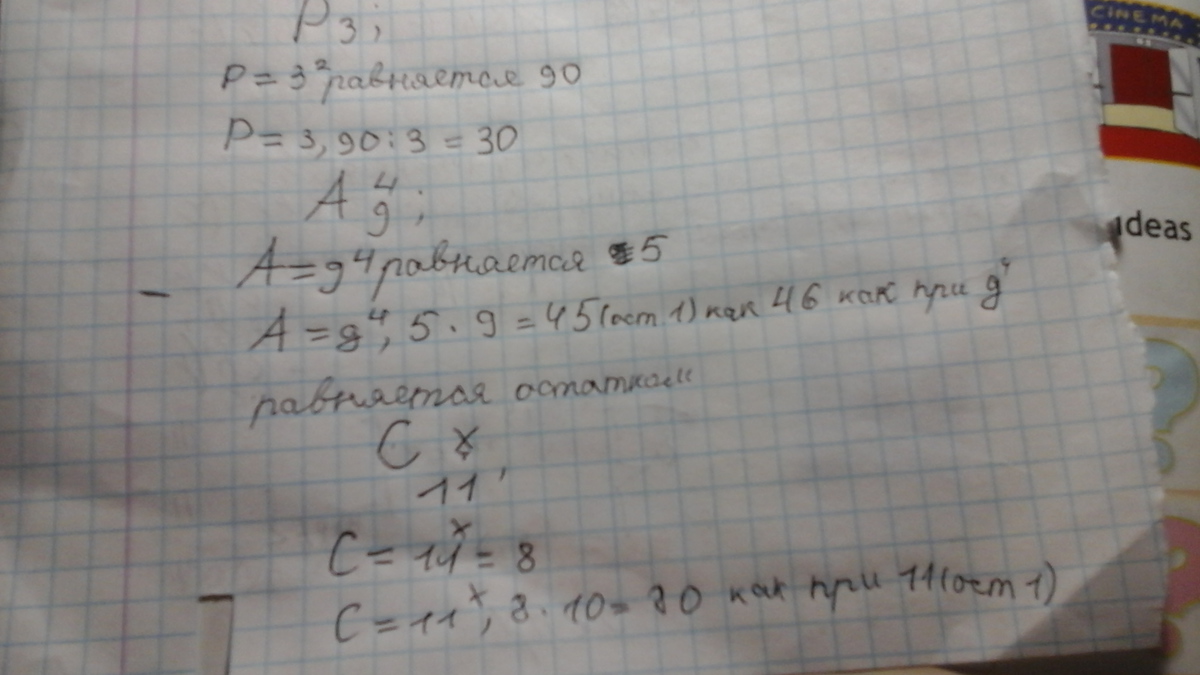 P3;
P = 3² равняется 90
P = 3, 90 : 3 = 30
A 4
9;
A = 9⁴ равняется 5
A = 9⁴, 5 · 9 = 45 (ост 1) как 46 как при 9⁴
равняется остатками
C x
11,
C = 11ˣ = 8
C = 11ˣ, 8 · 10 = 80 как при 11 (ост 1)
CINEMA
ideas